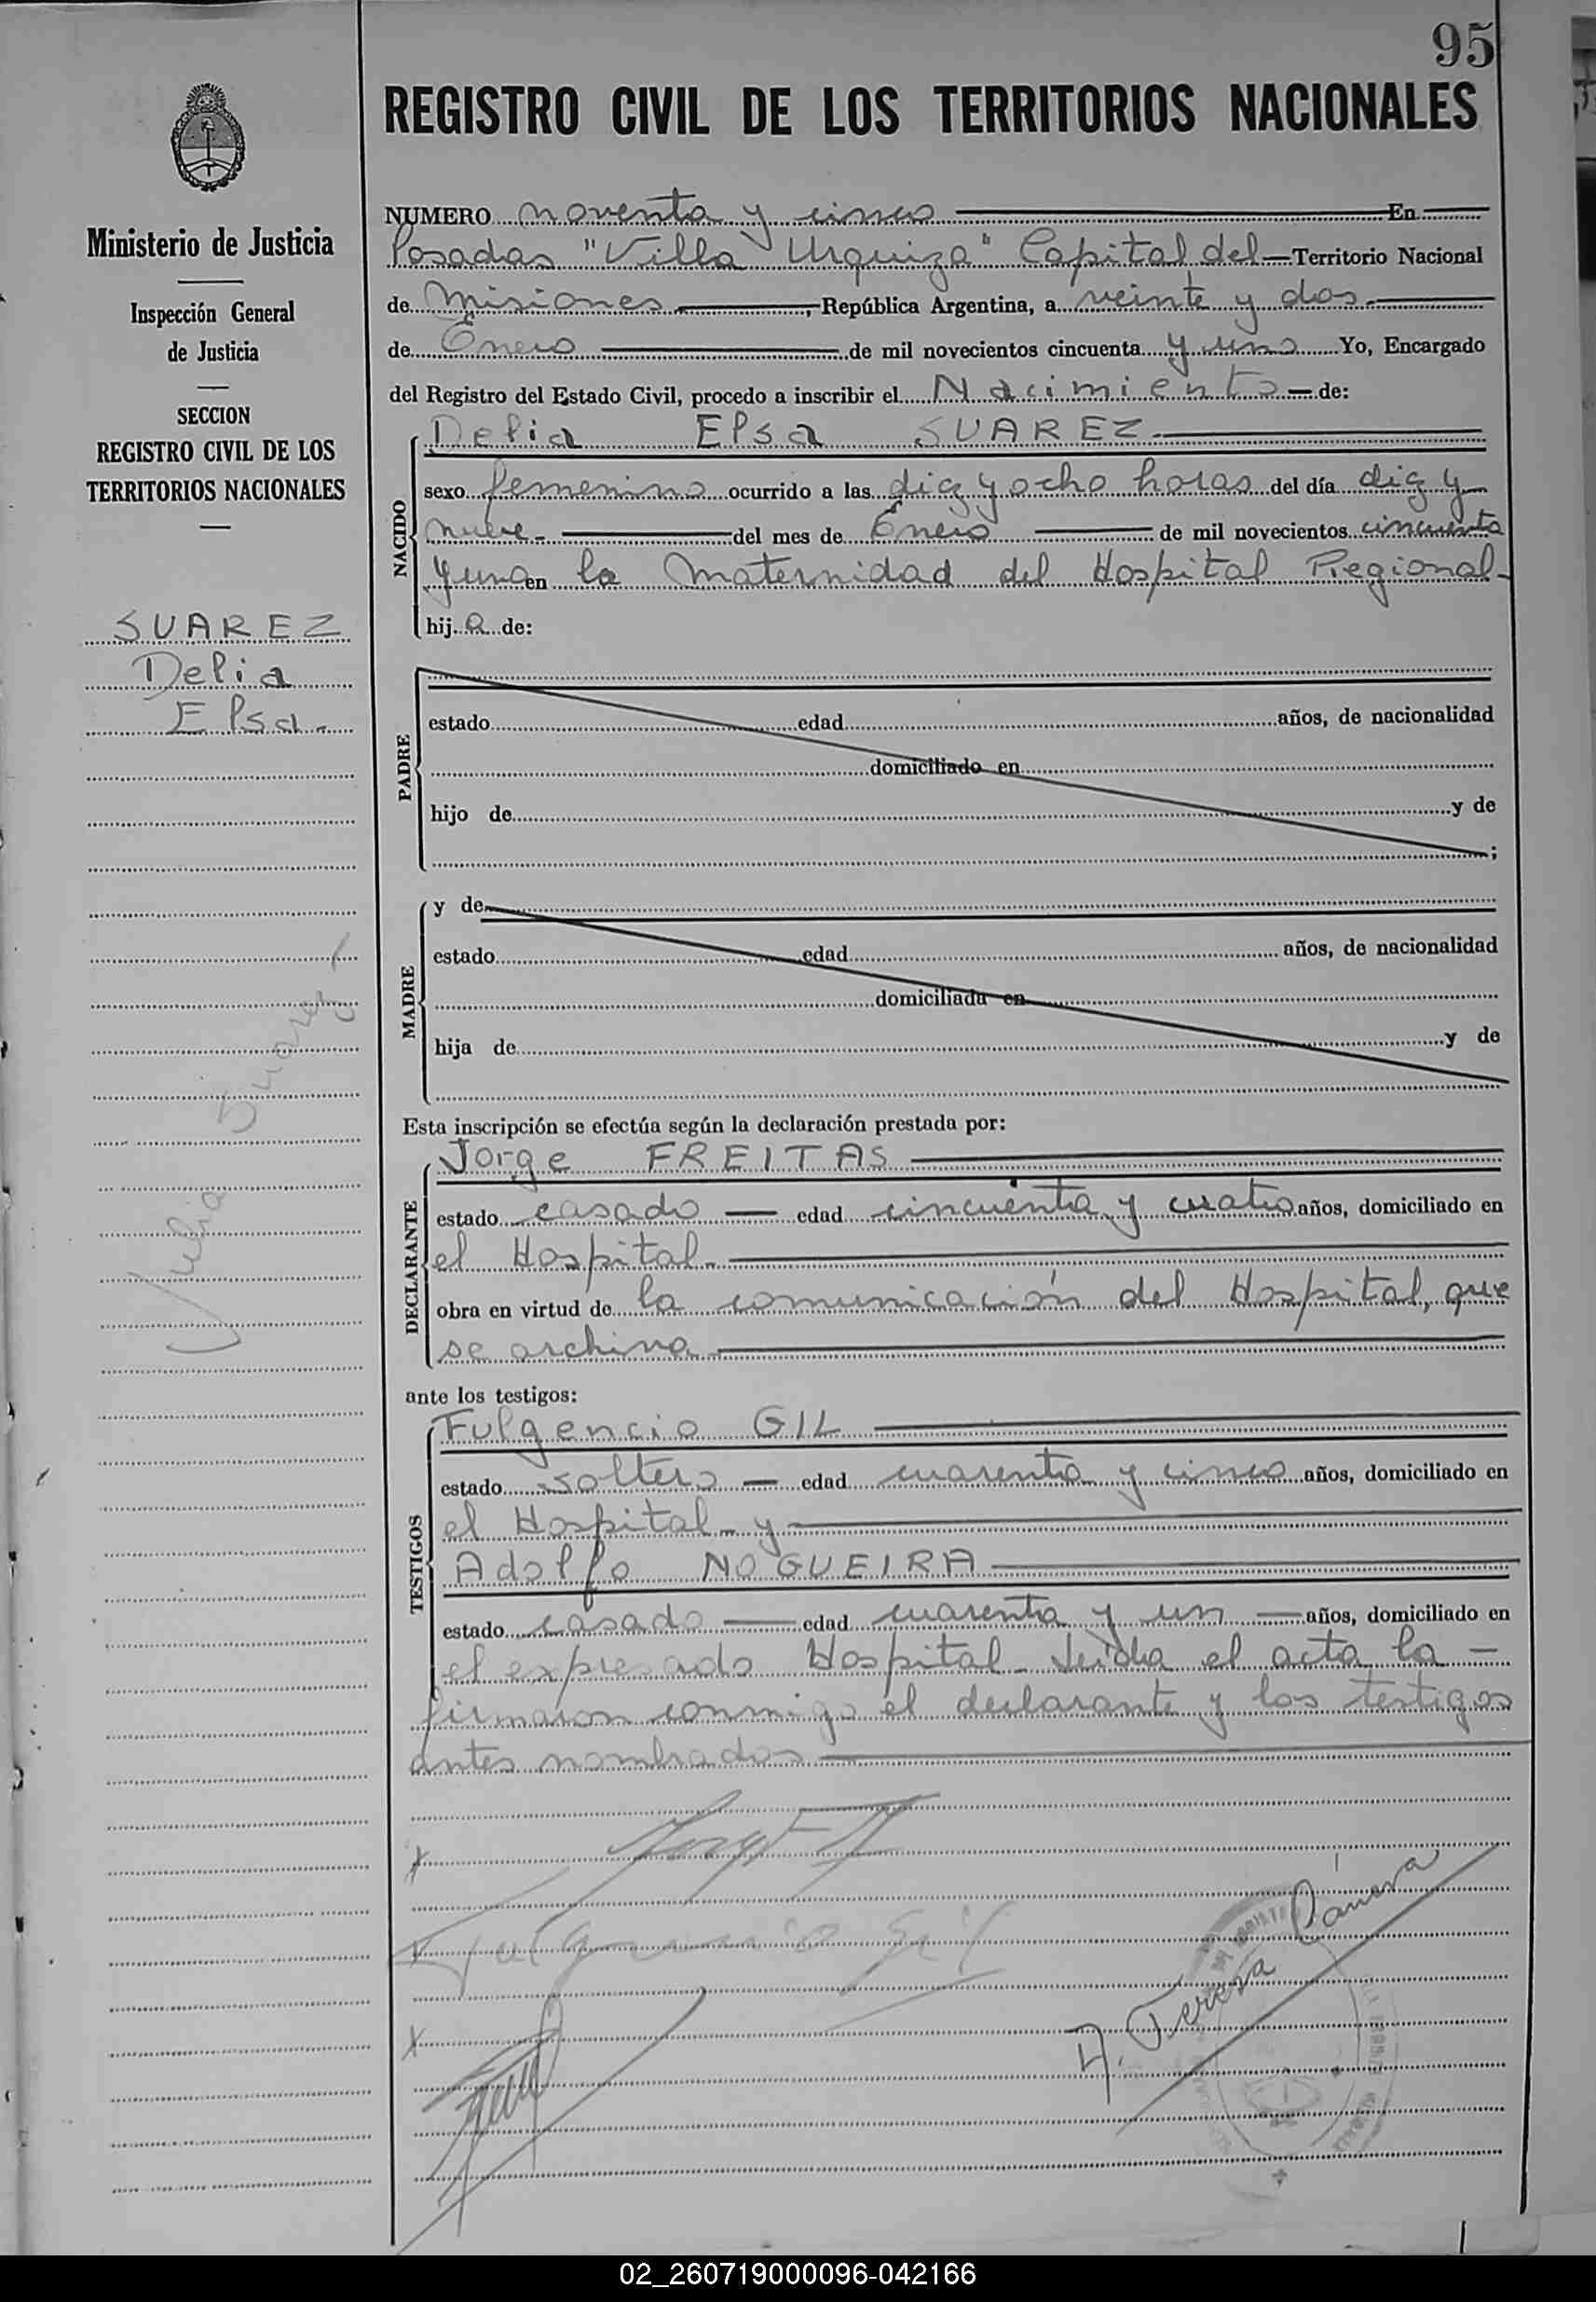 95
REGISTRO CIVIL DE LOS TERRITORIOS NACIONALES
Ministerio de Justicia
Inspección General
de Justicia
SECCION
REGISTRO CIVIL DE LOS
TERRITORIOS NACIONALES
SUAREZ
Delia
Elsa.
Julia Suarez
NUMERO noventa y cinco En
Posadas "Villa Urquiza" Capital del Territorio Nacional
de Misiones, República Argentina, a veinte y dos
de Enero de mil novecientos cincuenta y uno Yo, Encargado
del Registro del Estado Civil, procedo a inscribir el Nacimiento de:
Delia Elsa SUAREZ
NACIDO
sexo femenino ocurrido a las diez y ocho horas del día diez y
nueve del mes de Enero de mil novecientos cincuenta
y uno en la Maternidad del Hospital Regional
hija de:
PADRE
estado edad años, de nacionalidad
domiciliado en
hijo de y de
;
MADRE
y de
estado edad años, de nacionalidad
domiciliada en
hija de y de
Esta inscripción se efectúa según la declaración prestada por:
DECLARANTE
Jorge FREITAS
estado casado edad cincuenta y cuatro años, domiciliado en
el Hospital.
obra en virtud de la comunicación del Hospital, que
se archiva
ante los testigos:
TESTIGOS
Fulgencio GIL
estado soltero edad cuarenta y cinco años, domiciliado en
el Hospital y
Adolfo NOGUEIRA
estado casado edad cuarenta y un años, domiciliado en
el expresado Hospital. Leída el acta la
firmaron conmigo el declarante y los testigos
antes nombrados
Fulgencio Gil
Teresa
02_260719000096-042166